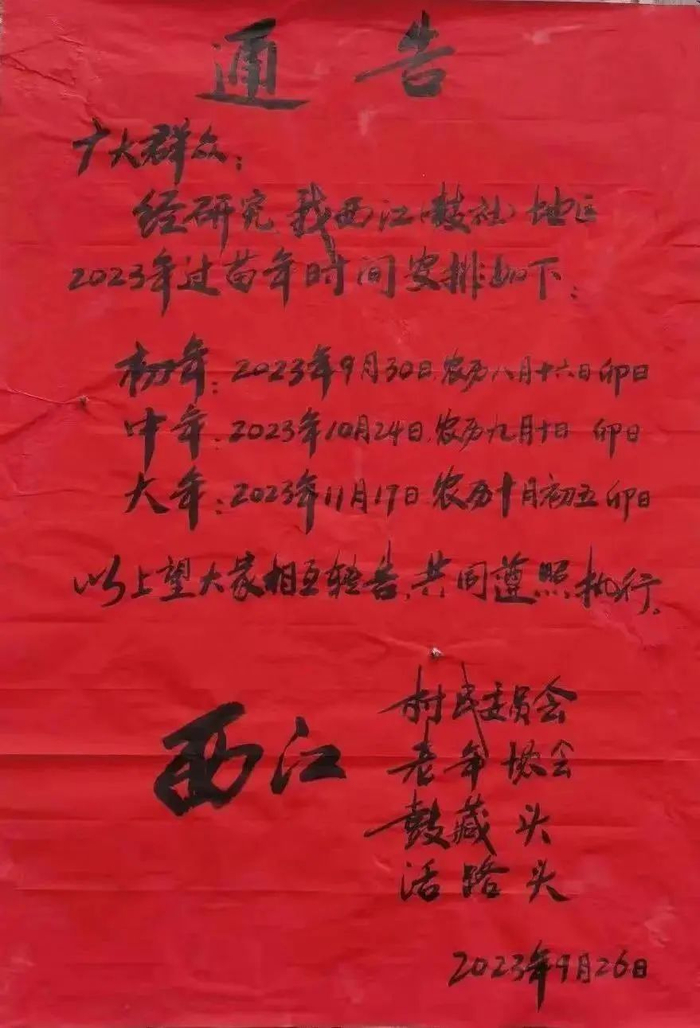 通告
广大群众：
经研究我西江（鼓社）地区
2023年过苗年时间安排如下：
初年：2023年9月30日，农历八月十六日卯日
中年：2023年10月24日，农历九月十日 卯日
大年：2023年11月17日，农历十月初五卯日
以上望大家相互转告，共同遵照执行。
西江
村民委员会
老年协会
鼓藏头
活路头
2023年9月26日